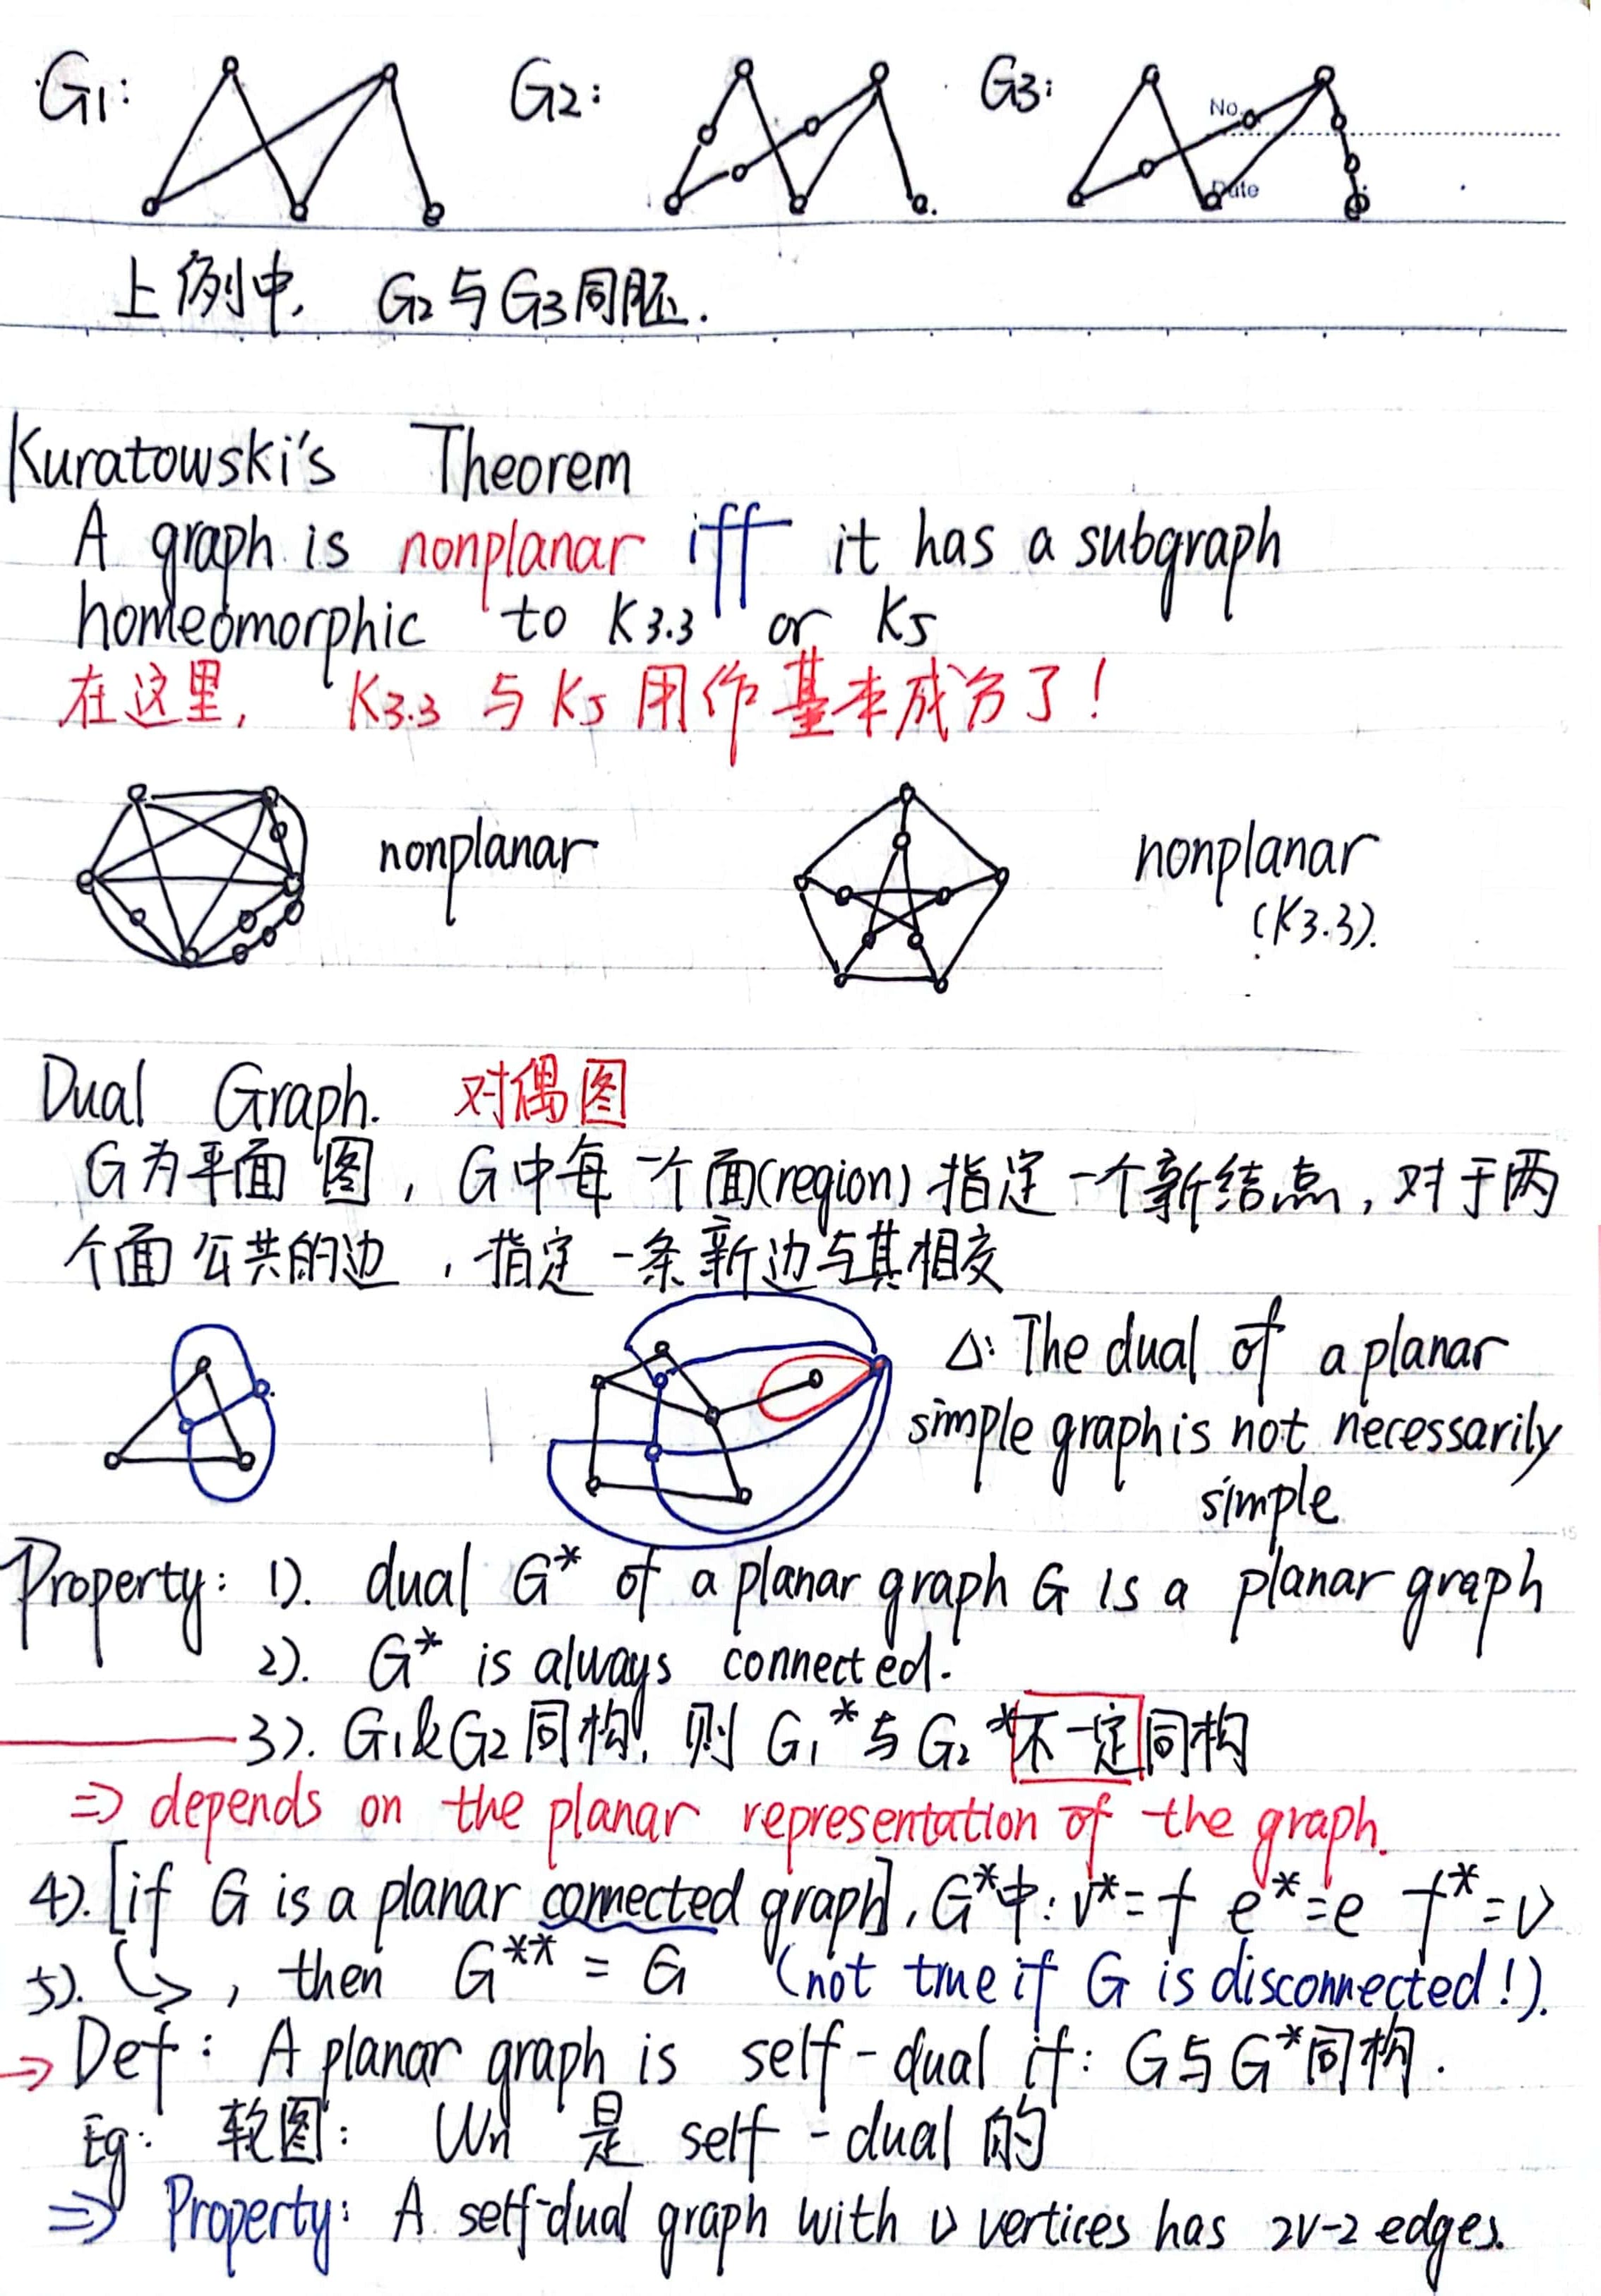 G1: G2: G3: No.
Date
上例中, G2与G3同胚.
Kuratowski's Theorem
A graph is nonplanar iff it has a subgraph
homeomorphic to K3.3 or K5
在这里, K3.3 与 K5 用作基本成分了!
nonplanar nonplanar
(K3.3).
Dual Graph. 对偶图
G为平面图, G中每一个面(region)指定一个新结点, 对于两
个面公共的边, 指定一条新边与其相交
△: The dual of a planar
simple graph is not necessarily
simple
Property: 1). dual G* of a planar graph G is a planar graph
2). G* is always connected.
3). G1&G2同构, 则 G1*与G2*不一定同构
⇒ depends on the planar representation of the graph.
4). [if G is a planar connected graph], G*中: v*=f e*=e f*=v
5). ↪, then G** = G (not true if G is disconnected!).
→ Def: A planar graph is self-dual if: G与G*同构.
Eg: 图: Wn 是 self-dual 的
⇒ Property: A self-dual graph with v vertices has 2v-2 edges.